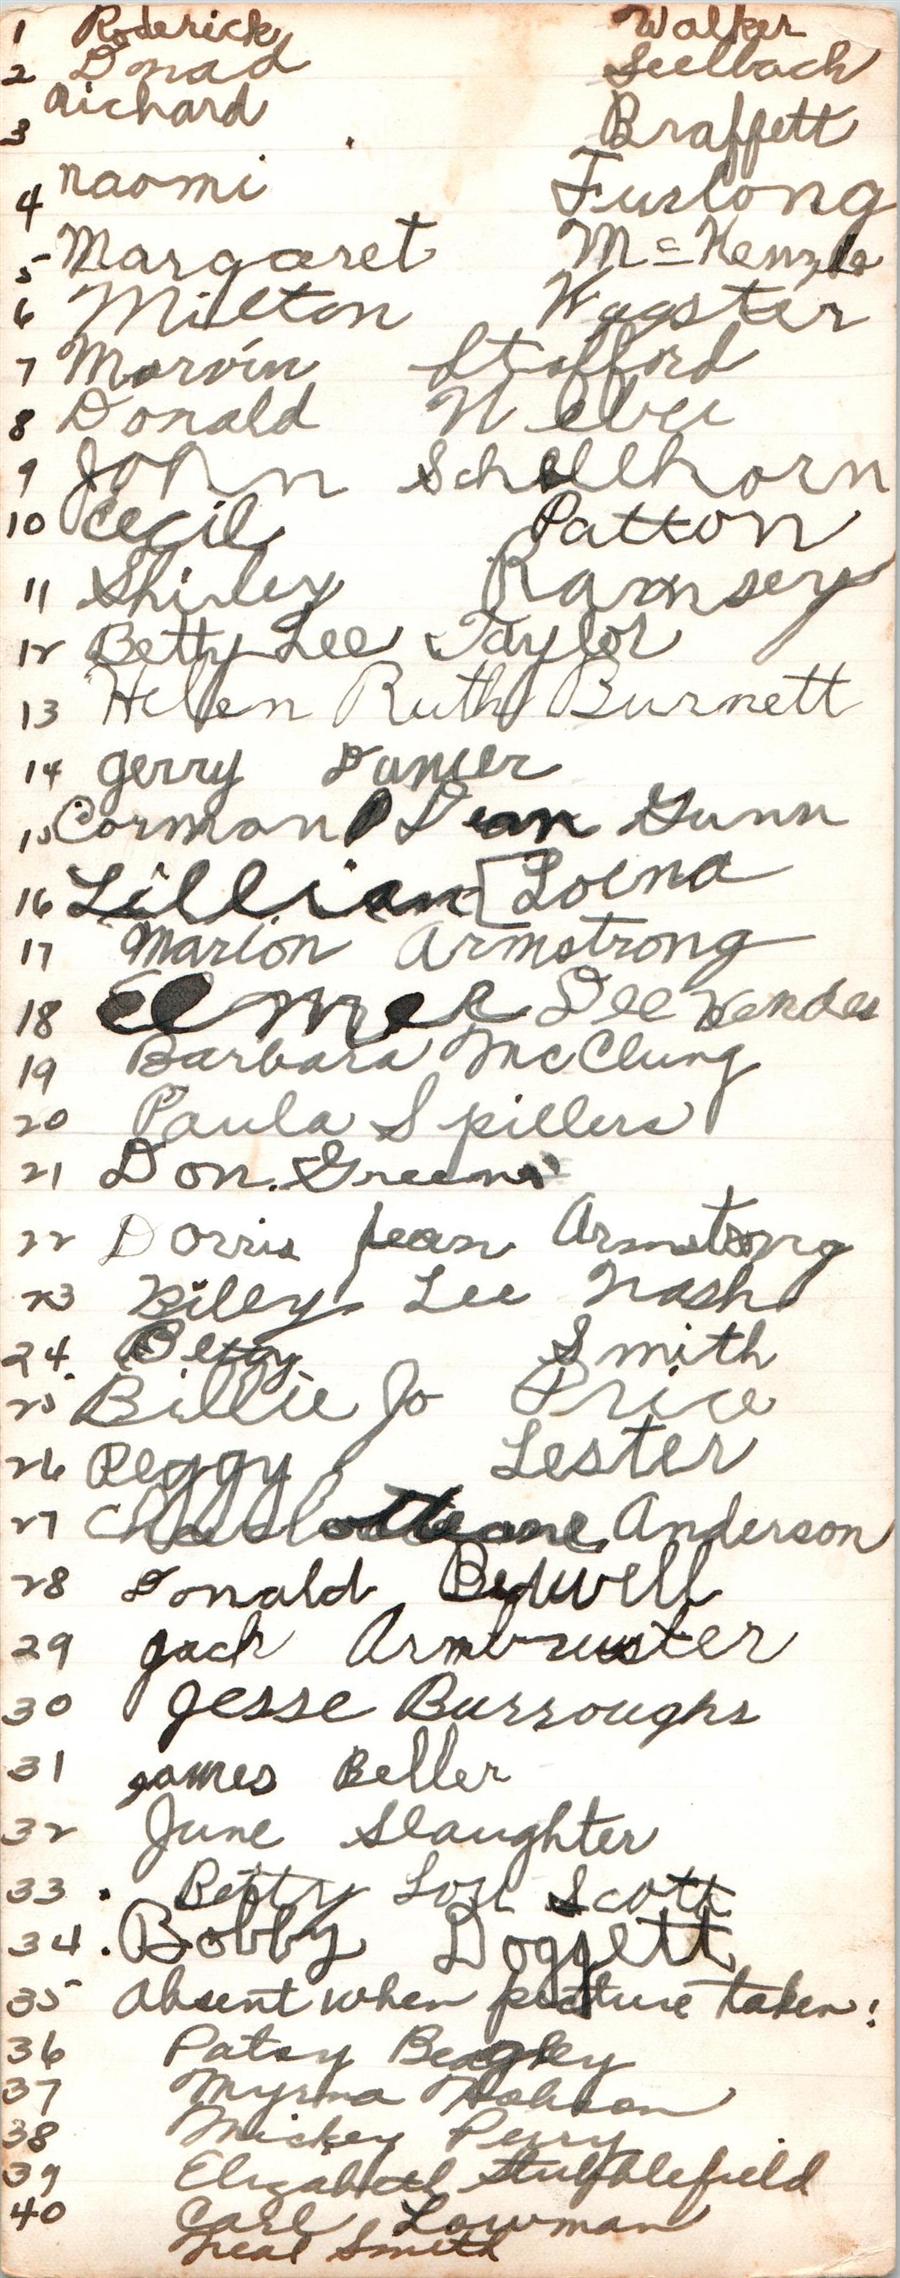 1 Roderick Walker
2 Donad Seelbach
3 Richard Braffett
4 naomi Furlong
5 Margaret McKenzie
6 Milton Wagster
7 Marvin Stafford
8 Donald
9 John Schellhorn
10 Cecil Patton
11 Shirley Ramsey
12 Betty Lee Taylor
13 Helen Ruth Burnett
14 Gerry
15 Dean Gunn
16 Lillian
17 Marion Armstrong
18 Elmer Dee
19 Barbara McClung
20 Paula Spillers
21 Don. Greene
22 Dorris Jean Armstrong
23 Billy Lee Nash
24. Smith
25. Billie Jo Price
26 Peggy Lester
27 Anderson
28 Donald Bedwell
29 Jack Armbruster
30 Jesse Burroughs
31 James Beller
32 June Slaughter
33. Betty Lou Scott
34. Bobby Doggett
35 Absent when picture taken:
36 Patsy Beagley
37 Myrna Hobson
38 Mickey Perry
39 Elizabeth Stubblefield
40 Carl Lowman
Neal Smith